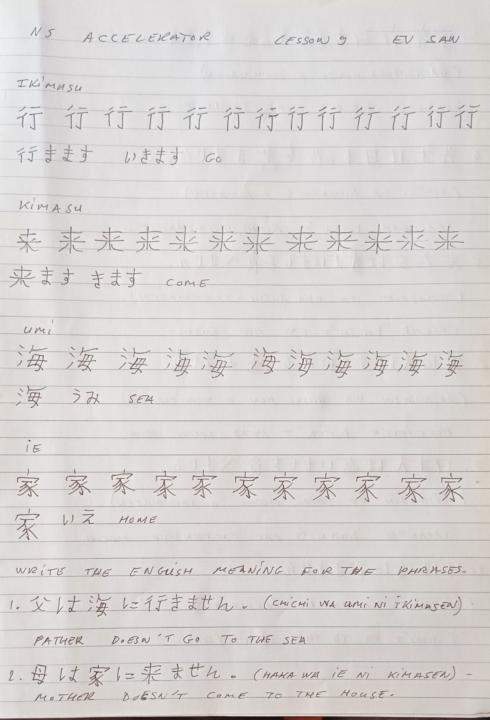 N5 ACCELERATOR LESSON 9 EV SAN
IKIMASU
行 行 行 行 行 行 行 行 行 行 行 行 行
行まます いきます GO
KIMASU
来 来 来 来 来 来 来 来 来 来 来 来
来ます きます COME
UMI
海 海 海 海 海 海 海 海 海 海 海
海 うみ SEA
IE
家 家 家 家 家 家 家 家 家 家 家
家 いえ HOME
WRITE THE ENGLISH MEANING FOR THE PHRASES.
1. 父は海に行きません。(CHICHI WA UMI NI IKIMASEN)
FATHER DOESN'T GO TO THE SEA
2. 母は家に来ません。(HAHA WA IE NI KIMASEN) -
MOTHER DOESN'T COME TO THE HOUSE.